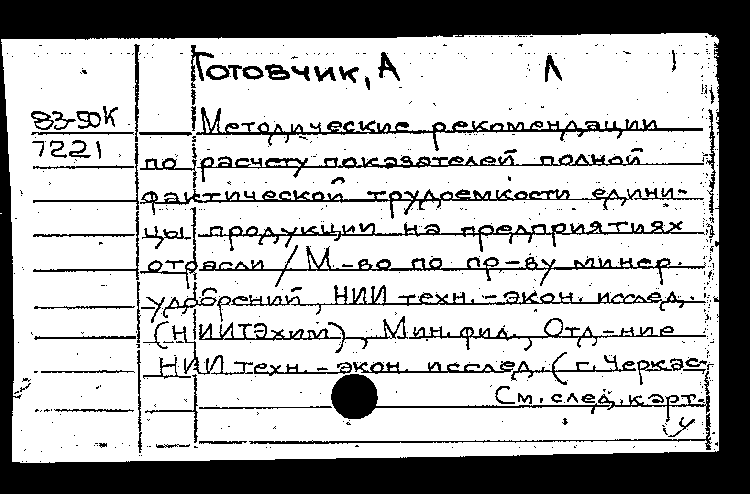 Готовчик, А Л 1
83-50К
7221
Методические рекомендации
по расчету показателей полной
фактической трудоемкости едини-
цы продукции на предприятиях
отрасли / М-во по пр-ву минер.
удобрений, НИИ техн.-экон. исслед.
(НИИТЭхим), Мин. фил., Отд-ние
НИИ техн.-экон. исслед. (г. Черкас-
См. след. карт.